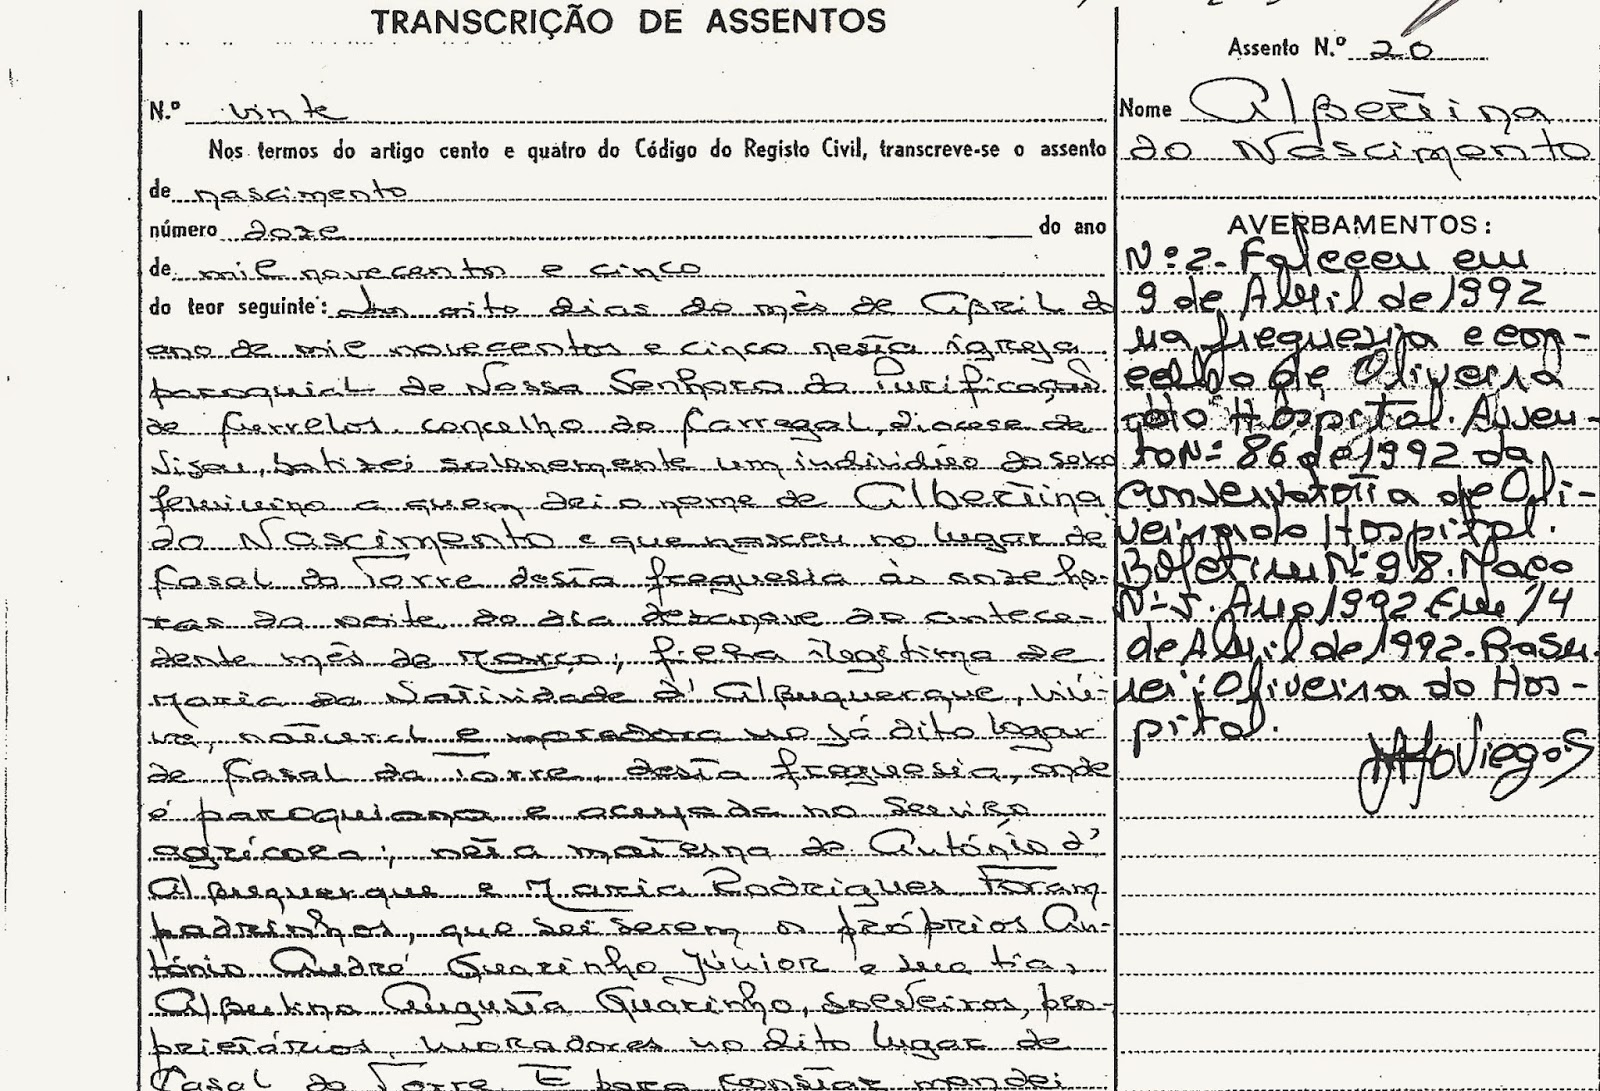 TRANSCRIÇÃO DE ASSENTOS
N.º vinte
Nos termos do artigo cento e quatro do Código do Registo Civil, transcreve-se o assento
de nascimento
número doze do ano
de mil novecento e cinco
do teor seguinte: Aos oito dias do mês de Abril do
ano de mil novecentos e cinco nesta igreja
paroquial de Nossa Senhora da Purificação
de concelho do Carregal, diocese de
Viseu, batizei solenemente um indivíduo do sexo
feminino a quem dei o nome de Albertina
do Nascimento e que nasceu no lugar de
Casal da Torre desta freguesia às onze ho-
ras da noite do dia dezanove do antece-
dente mês de Março; filha ilegitima de
Maria da Natividade d'Albuquerque, viú-
va, natural e moradora no já dito lugar
de Casal da Torre, desta freguesia, onde
é paroquiana e ocupada no serviço
agrícola; neta materna de António d'
Albuquerque e Maria Rodrigues. Foram
padrinhos, que sei serem os próprios An-
tónio André Guarinho Júnior e sua tia,
Albertina Augusta Guarinho, solteiros, pro-
prietários, moradores no dito lugar de
Casal da Torre. E para constar mandei
Assento N.º 20
Nome Albertina
do Nascimento
AVERBAMENTOS:
Nº 2 - Faleceu em
9 de Abril de 1992
na freguesia e con-
celho de Oliveira
do Hospital. Assen-
to Nº 86 de 1992 da
Conservatória de Oli-
veira do Hospital.
Boletim Nº 98. Maço
Nº 5. Ano 1992. Em 14
de Abril de 1992.
Oliveira do Hos-
pital.